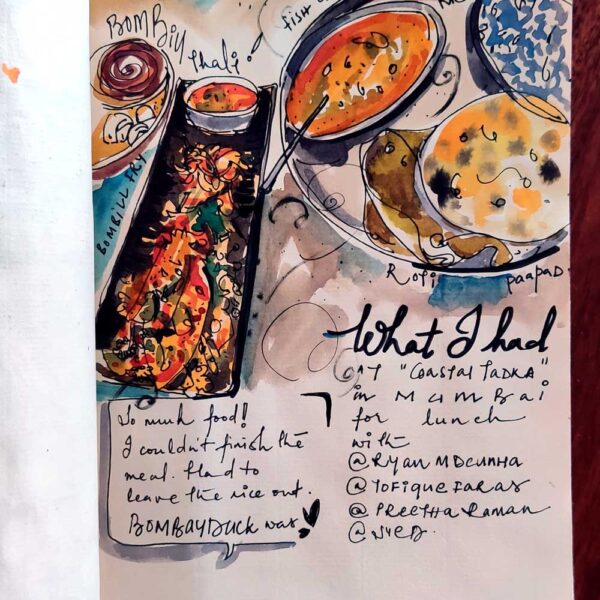 BOMBIll
Thali!
FISH
BOMBILL FRY
Roti
paapad
What I had
AT "COASTAL TADKA"
in MUMBai
for lunch
with
@RYAN MDCUNHA
@TOFIQUEFARAS
@PREETHA RAMAN
So much food!
I couldn't finish the
meal. Had to
leave the rice out.
BOMBAYDUCK was